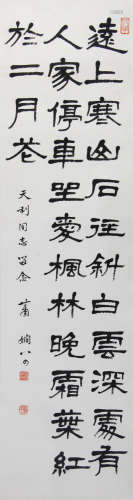 遠上寒山石徑斜白雲深處有
人家停車坐愛楓林晚霜葉紅
於二月花
天利同志留念 蕭嫻八四